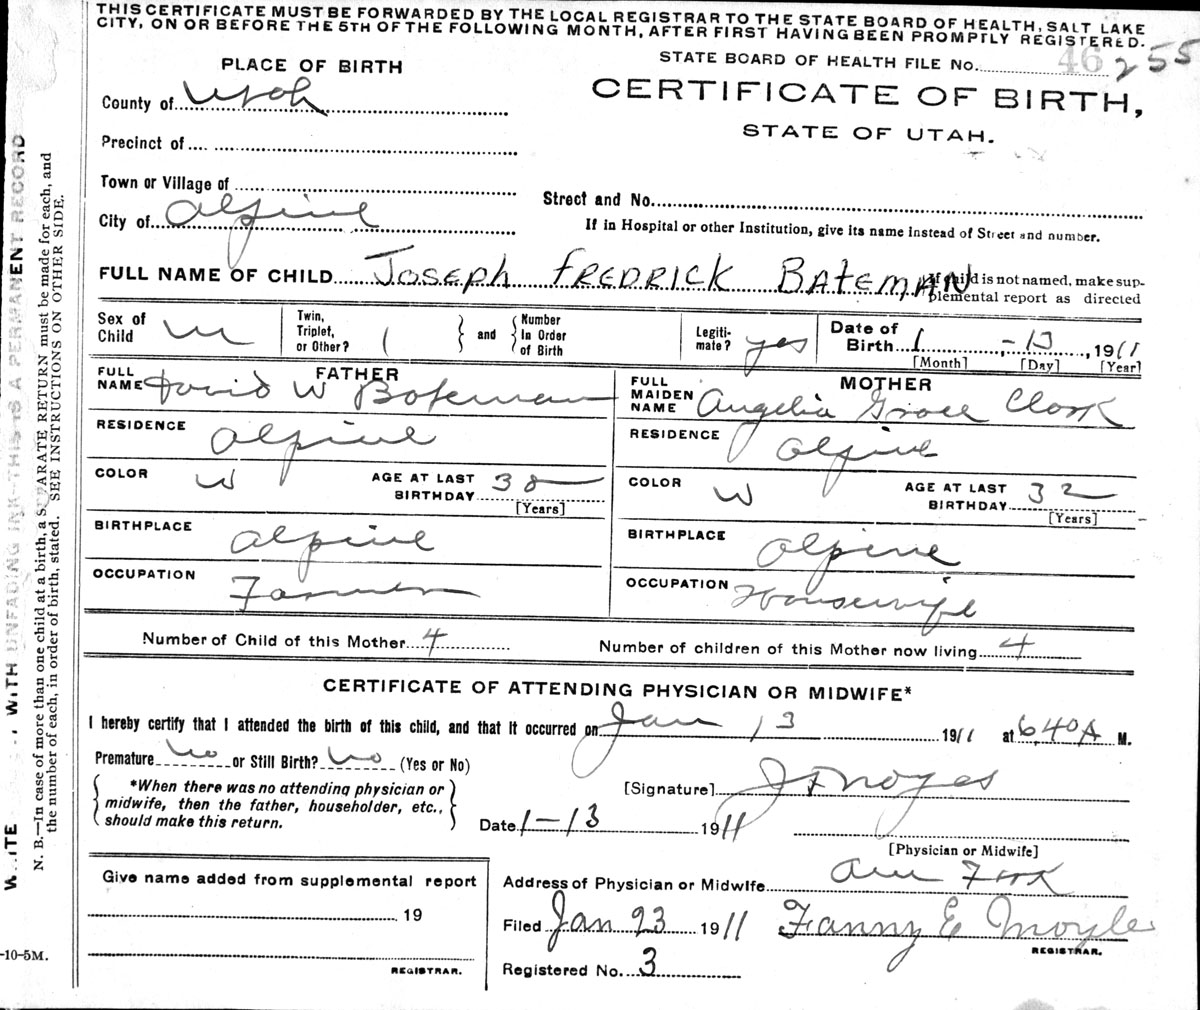 THIS CERTIFICATE MUST BE FORWARDED BY THE LOCAL REGISTRAR TO THE STATE BOARD OF HEALTH, SALT LAKE
CITY, ON OR BEFORE THE 5TH OF THE FOLLOWING MONTH, AFTER FIRST HAVING BEEN PROMPTLY REGISTERED.
STATE BOARD OF HEALTH FILE No. 46 255
PLACE OF BIRTH
CERTIFICATE OF BIRTH,
STATE OF UTAH.
County of Utah
Precinct of
Town or Village of
Street and No.
City of Alpine
If in Hospital or other Institution, give its name instead of Street and number.
FULL NAME OF CHILD JOSEPH FREDRICK BATEMAN
If child is not named, make sup-
plemental report as directed
Sex of Child M
Twin, Triplet, or Other? 1 and Number In Order of Birth
Legiti- mate? yes
Date of Birth 1 - 13, 1911
[Month] [Day] [Year]
FATHER
FULL NAME David W Bateman
RESIDENCE Alpine
COLOR W AGE AT LAST BIRTHDAY 38
[Years]
BIRTHPLACE Alpine
OCCUPATION Farmer
MOTHER
FULL MAIDEN NAME Angelia Grace Clark
RESIDENCE Alpine
COLOR W AGE AT LAST BIRTHDAY 32
[Years]
BIRTHPLACE Alpine
OCCUPATION Housewife
Number of Child of this Mother 4 Number of children of this Mother now living 4
CERTIFICATE OF ATTENDING PHYSICIAN OR MIDWIFE*
I hereby certify that I attended the birth of this child, and that it occurred on Jan 13 1911 at 6.40 A M.
Premature No or Still Birth? No (Yes or No)
*When there was no attending physician or
midwife, then the father, householder, etc.,
should make this return.
[Signature] Noyes
Date 1-13 1911
[Physician or Midwife]
Give name added from supplemental report
19
REGISTRAR.
Address of Physician or Midwife Am Fork
Filed Jan 23 1911 Fanny E Moyle
REGISTRAR.
Registered No. 3
-10-5M.
WITH UNFADING INK—THIS IS A PERMANENT RECORD
N. B.—In case of more than one child at a birth, a SEPARATE RETURN must be made for each, and
the number of each, in order of birth, stated. SEE INSTRUCTIONS ON OTHER SIDE.